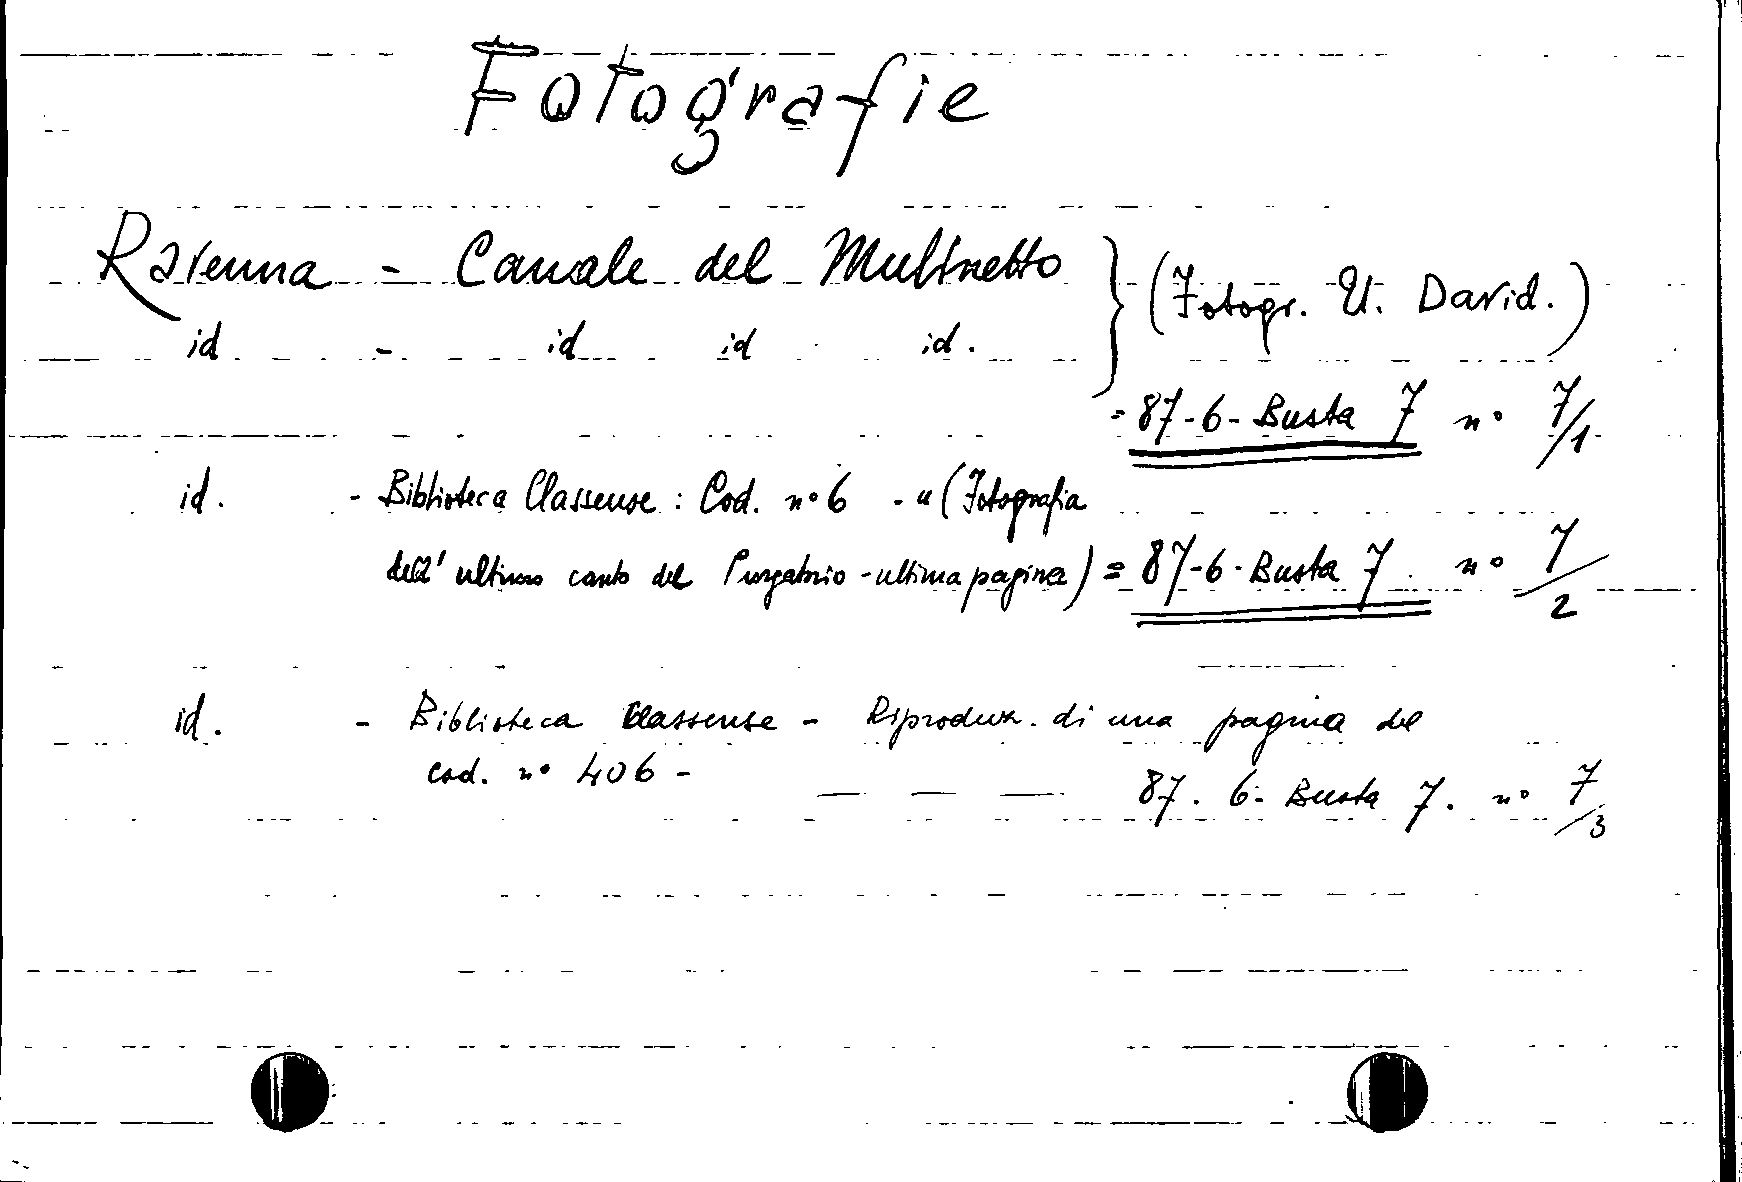 Fotografie
Ravenna - Canale del Mulinetto } (Fotogr. U. David.)
id - id id id.
= 87-6- Busta 7 n° 7/1
id. - Biblioteca Classense : Cod. n° 6 - " (Fotografia
dell' ultimo canto del Purgatorio - ultima pagina) = 87-6- Busta 7. n° 7/2
id. - Biblioteca Classense - Riproduz. di una pagina del
cod. n° 406 -
87. 6- Busta 7. n° 7/3